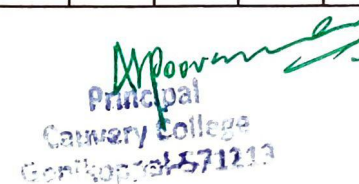 Principal
Cauvery College
Gonikoppal-571213